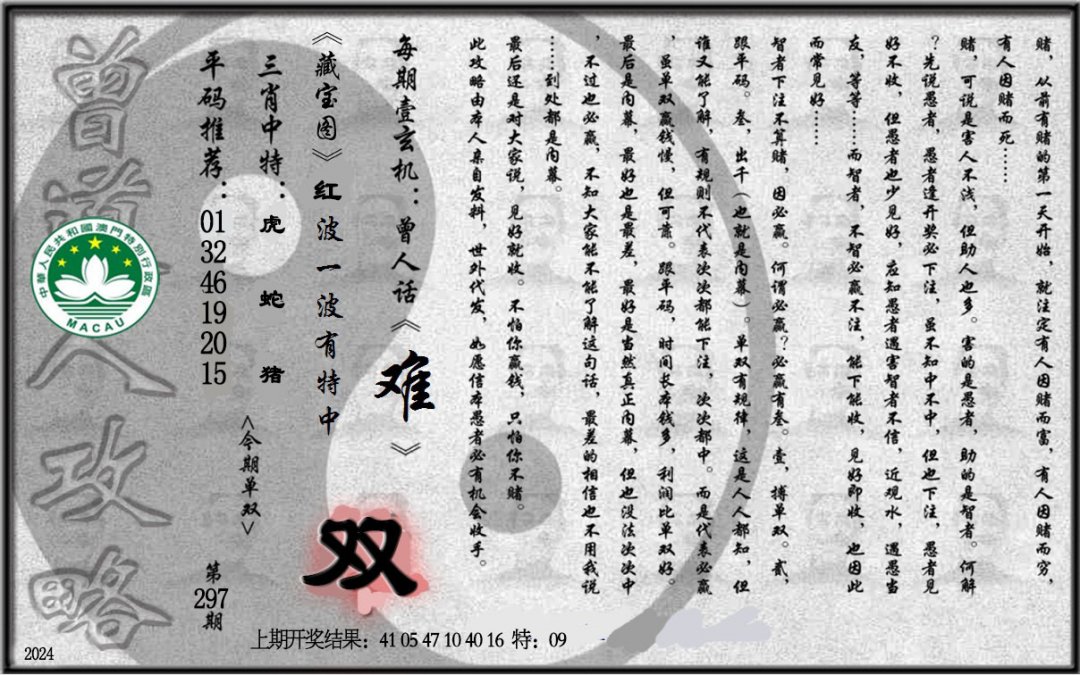 赌，从前有赌的第一天开始，就注定有人因赌而富，有人因赌而穷，
有人因赌而死……
赌，可说是害人不浅，但助人也多。害的是愚者，助的是智者。何解
？先说愚者，愚者逢开奖必下注，虽不知中不中，但也下注，愚者见
好不收，但愚者也少见好，应知愚者遇害智者不信，近观水，遇愚当
友，等等……而智者，不智必赢不注，能下能收，见好即收，也因此
而常见好……
智者下注不算赌，因必赢。何谓必赢？必赢有叁。壹，搏单双。贰，
跟平码。叁，出千（也就是内幕）。单双有规律，这是人人都知，但
谁又能了解，有规则不代表次次都能下注，次次都中。而是代表必赢
，虽单双赢钱慢，但可靠。跟平码，时间长本钱多，利润比单双好。
最后是内幕，最好也是最差，最好是当然真正内幕，但也没法次次中
，不过也必赢，不知大家能不能了解这句话，最差的相信也不用我说
……到处都是内幕。
最后还是对大家说，见好就收。不怕你赢钱，只怕你不赌。
此攻略由本人亲自发料，世外代发，如愿信本愚者必有机会收手。
每期壹玄机：曾人话《难》
《藏宝图》红波一波有特中
双
三肖中特：虎 蛇 猪
<今期单双>
平码推荐：01 32 46 19 20 15
第297期
曾道人攻略
中華人民共和國澳門特別行政區
MACAU
上期开奖结果：41 05 47 10 40 16 特：09
2024